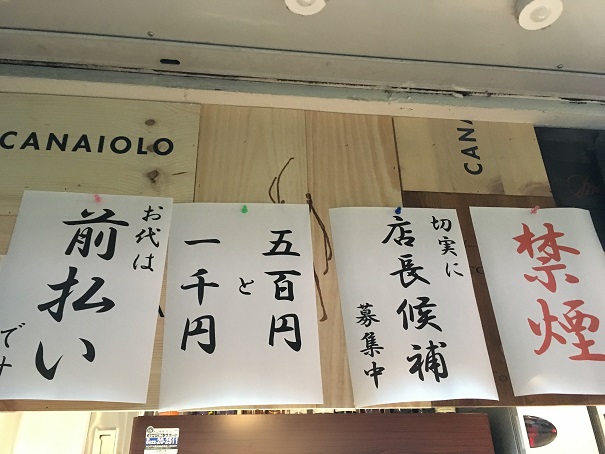 CANAIOLO
CANA
お代は
前払い
です
五百円
と
一千円
切実に
店長候補
募集中
禁煙